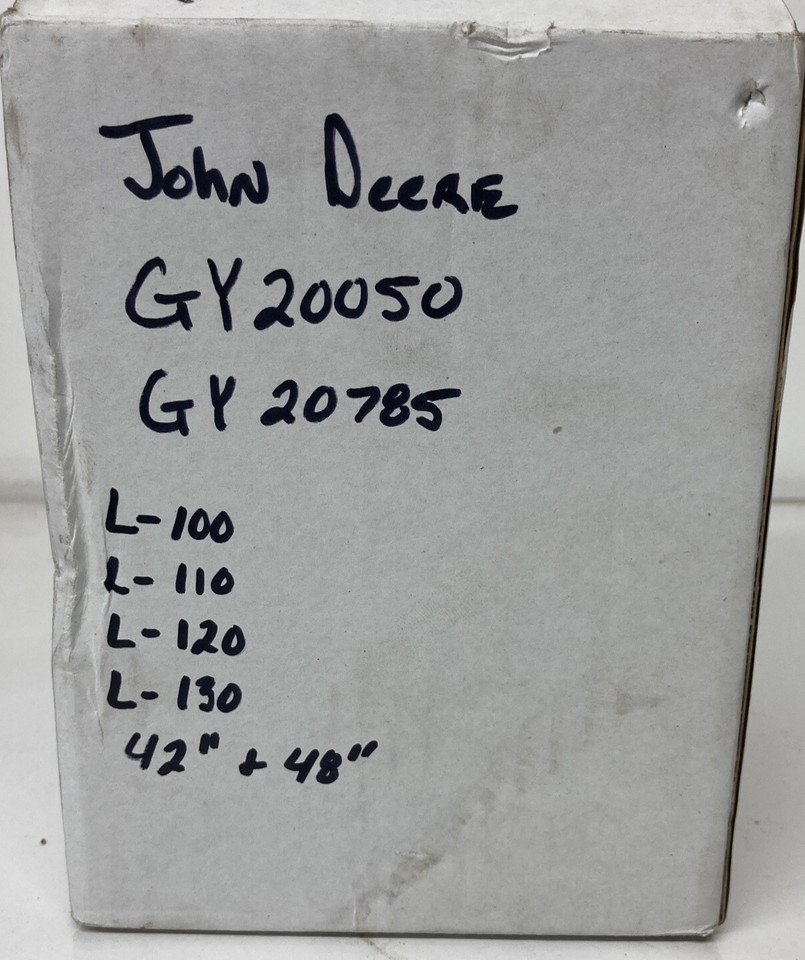 John Deere
GY20050
GY 20785
L-100
L-110
L-120
L-130
42" & 48"